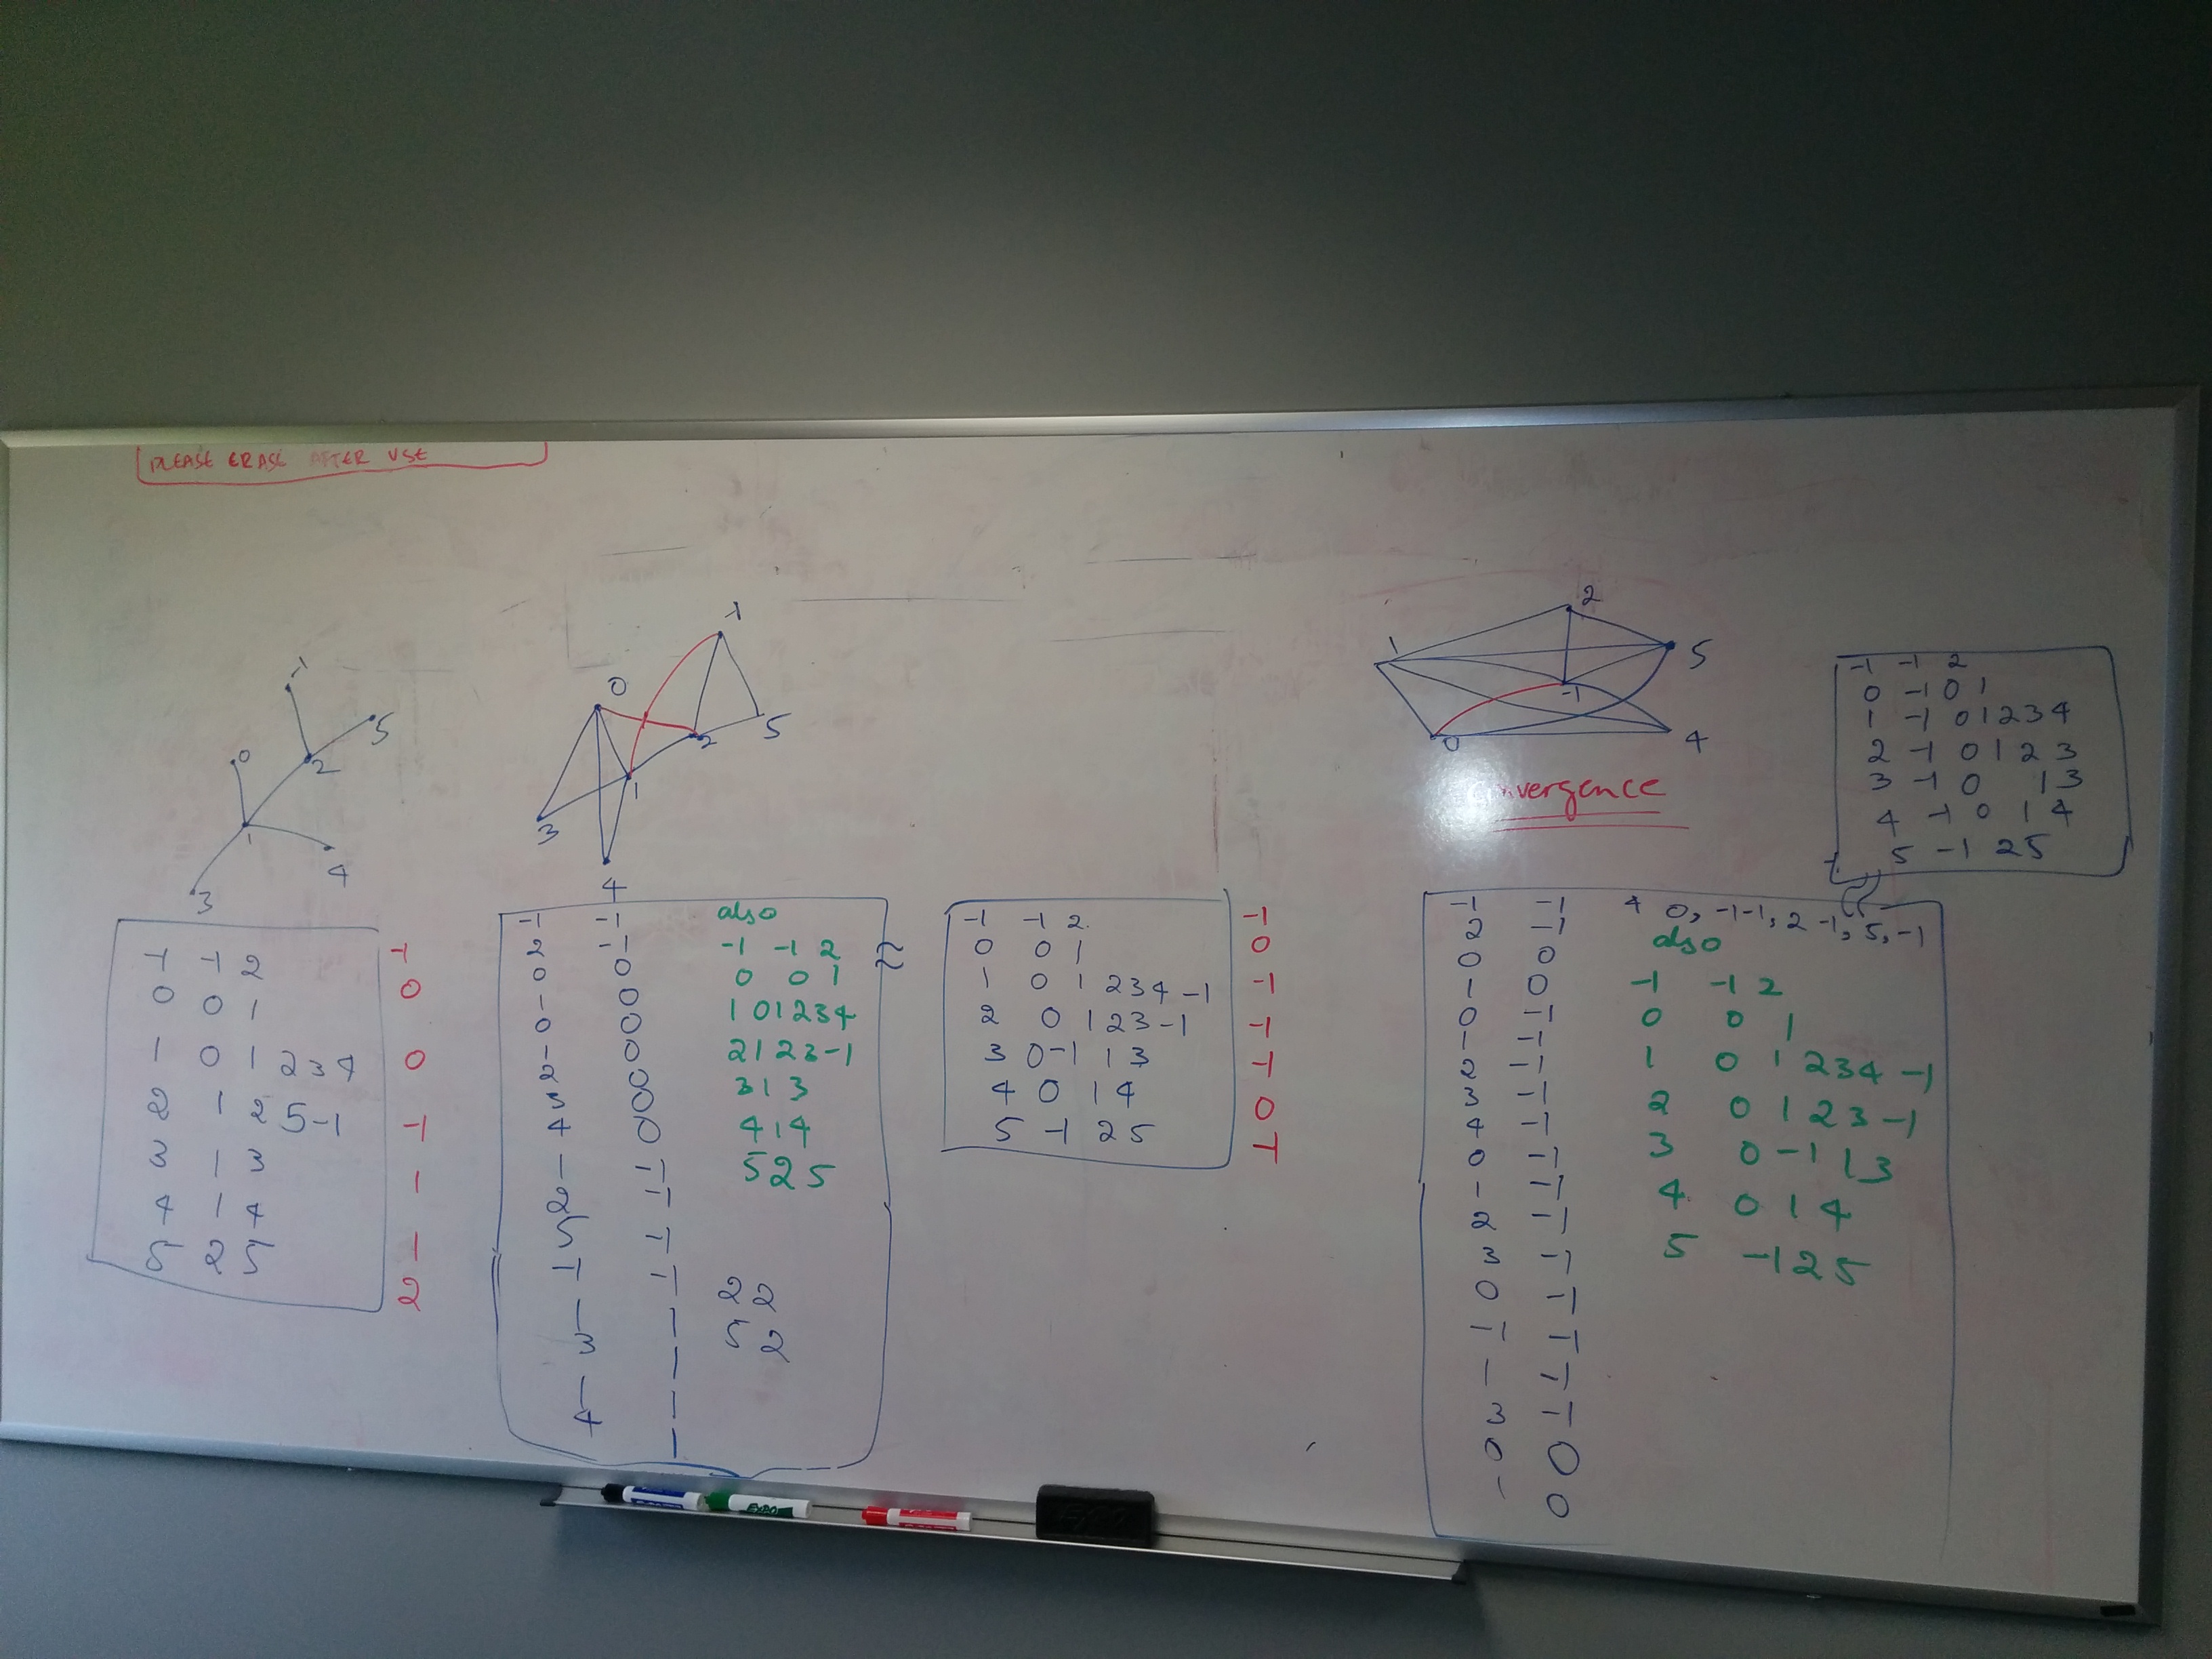 PLEASE ERASE AFTER USE
-1
5
0
2
1
4
3
-1 -1 2
0 0 1
1 0 1 2 3 4
2 1 2 5 -1
3 1 3
4 1 4
5 2 5
-1
0
0
-1
1
1
2
-1
0
5
2
1
3
4
-1 -1
2 -1
0 0
1 0
0 0
1 0
2 0
3 0
4 0
1 -1
2 -1
5 -1
-1 -1
1 1
3 1
1 1
4 1
also
-1 -1 2
0 0 1
1 0 1 2 3 4
2 1 2 3 -1
3 1 3
4 1 4
5 2 5
2 2
5 2
-1 -1 2
0 0 1
1 0 1 2 3 4 -1
2 0 1 2 3 -1
3 0 -1 1 3
4 0 1 4
5 -1 2 5
-1
0
-1
-1
-1
0
-1
2
1
5
-1
0
4
-1 -1 2
0 -1 0 1
1 -1 0 1 2 3 4
2 -1 0 1 2 3
3 -1 0 1 3
4 -1 0 1 4
5 -1 2 5
-1 -1
2 -1
0 0
1 0
0 -1
1 -1
2 -1
3 -1
4 -1
0 -1
1 -1
2 -1
3 -1
0 -1
-1 -1
1 -1
3 -1
0 0
1 0
4 0, -1 -1, 2 -1, 5, -1
also
-1 -1 2
0 0 1
1 0 1 2 3 4 -1
2 0 1 2 3 -1
3 0 -1 1 3
4 0 1 4
5 -1 2 5
EXPO